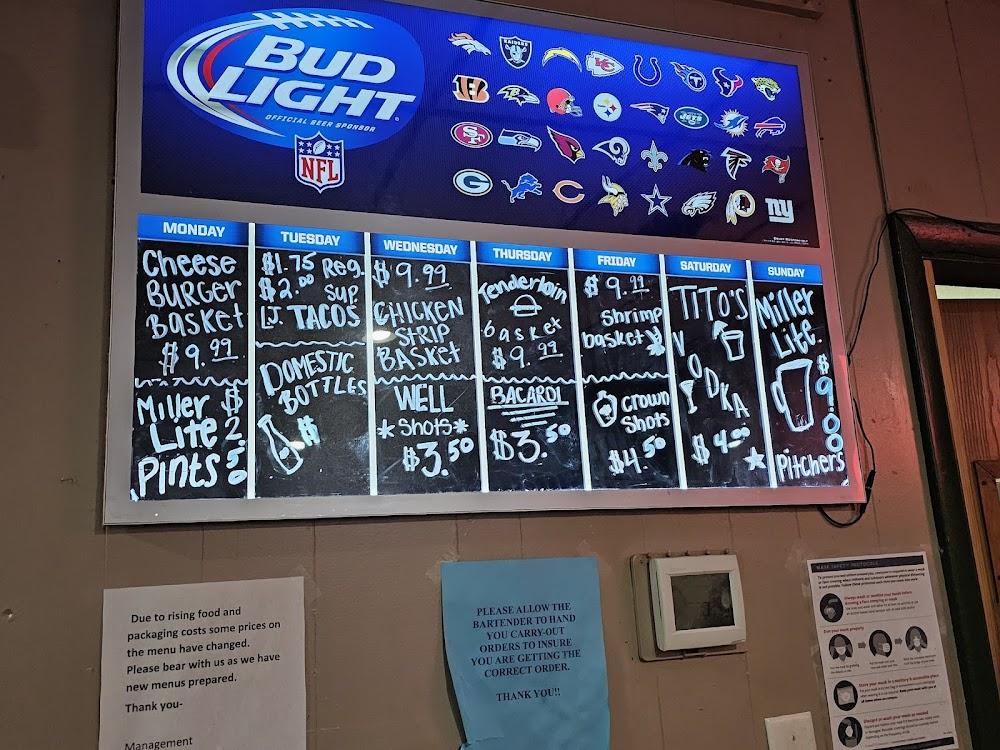 BUD
LIGHT
OFFICIAL BEER SPONSOR
NFL
RAIDERS
KC
T
JETS
SF
G
C
ny
MONDAY
Cheese
BURGER
Basket
$9.99
Miller $
Lite 2.
Pints 50
TUESDAY
$1.75 Reg.
$2.00 SUP.
L.J. TACOS
DOMESTIC
BOTTLES
$
WEDNESDAY
$9.99
CHICKEN
STRIP
BASKET
WELL
*Shots*
$3.50
THURSDAY
Tenderloin
basket
$9.99
BACARDI
$3.50
FRIDAY
$9.99
Shrimp
basket
Crown
Shots
$4.50
SATURDAY
TITO'S
VODKA
$4.00
SUNDAY
Miller
Lite
$9.00
Pitchers
Due to rising food and
packaging costs some prices on
the menu have changed.
Please bear with us as we have
new menus prepared.
Thank you-
Management
PLEASE ALLOW THE
BARTENDER TO HAND
YOU CARRY-OUT
ORDERS TO INSURE
YOU ARE GETTING THE
CORRECT ORDER.
THANK YOU!!
MASK SAFETY PROTOCOLS